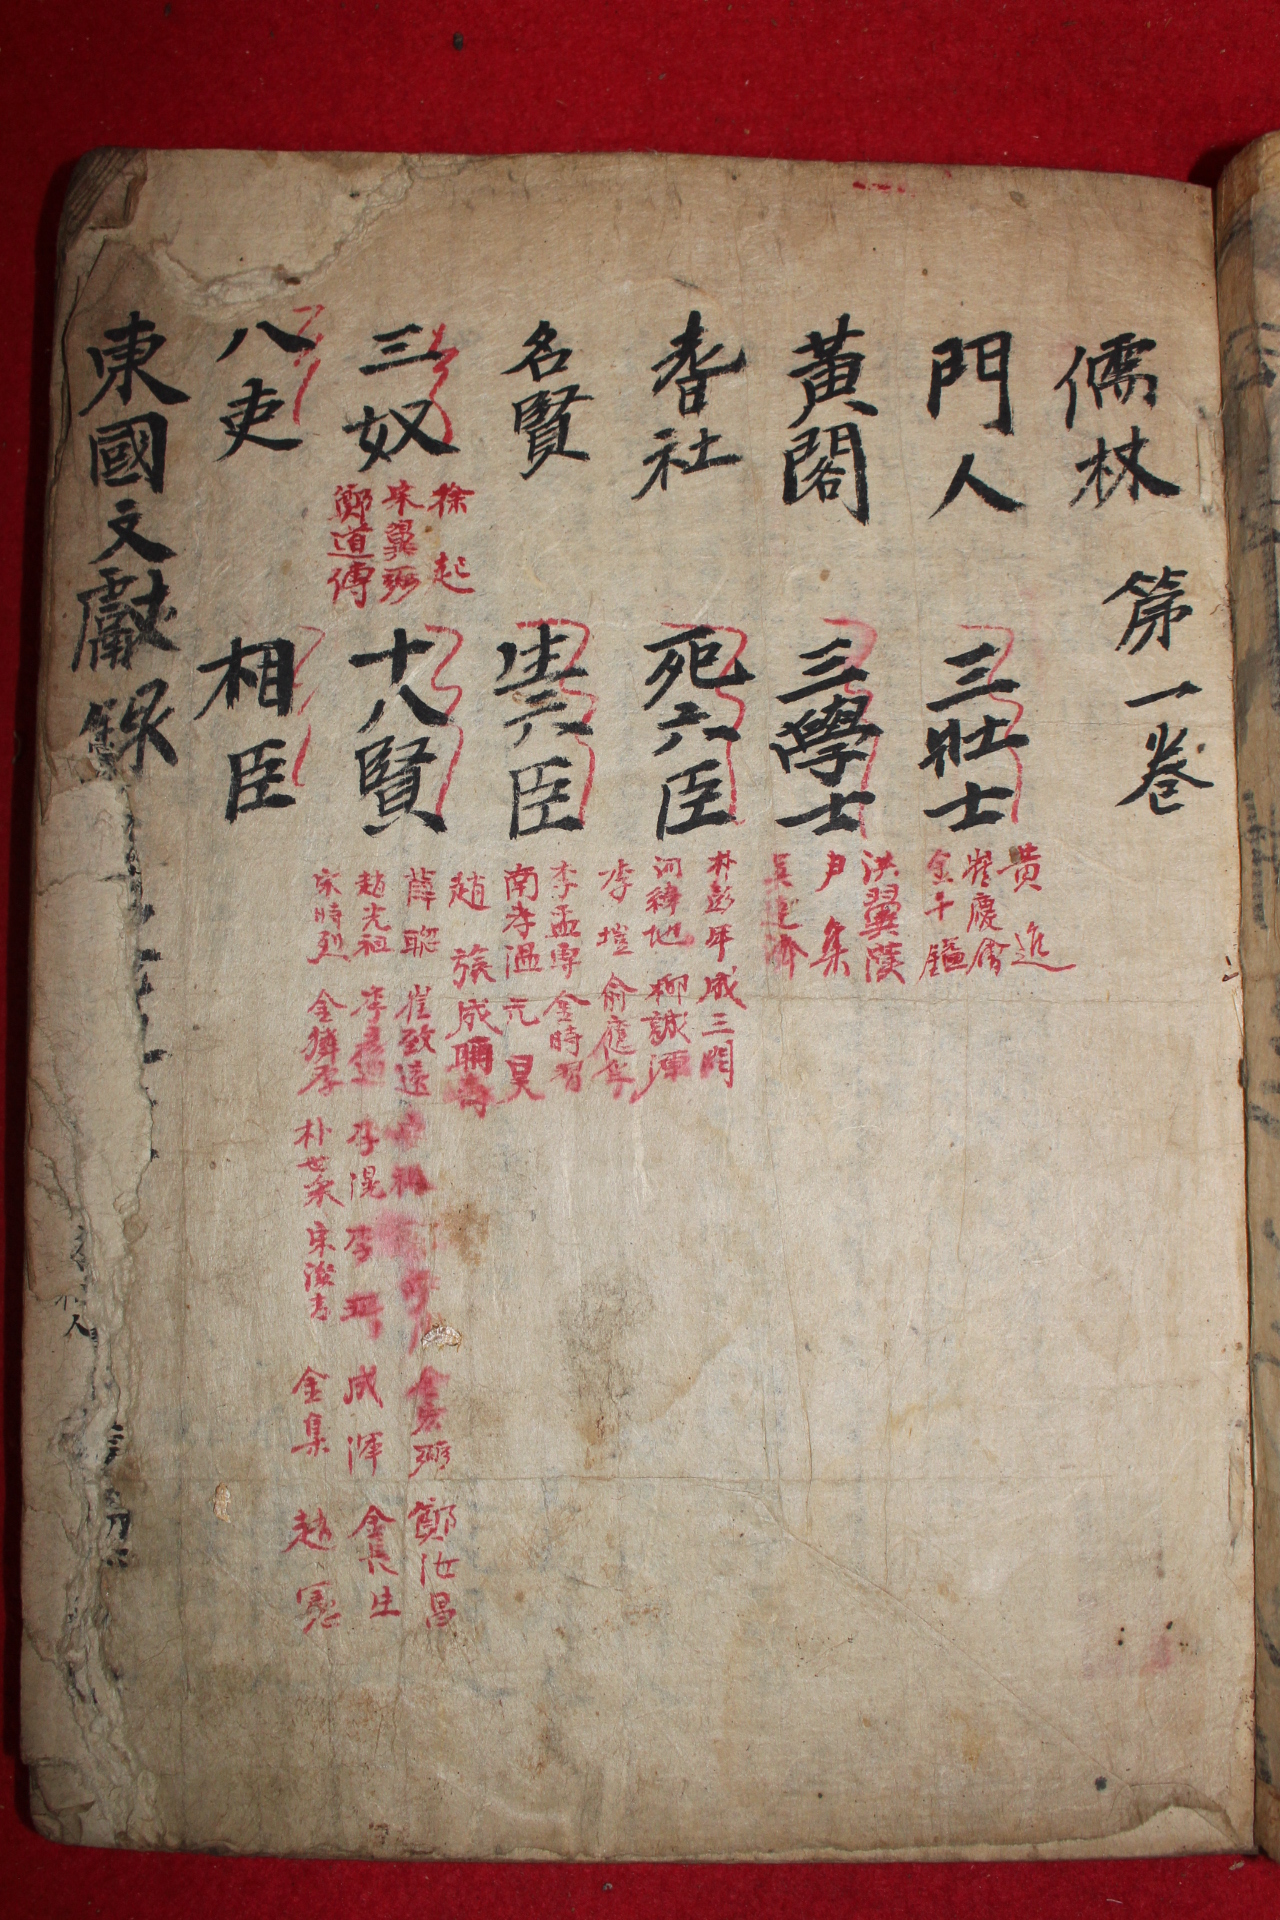 儒林 第一卷
門人 三壯士
黃進
崔慶會
金千鎰
黃閣 三學士
洪翼漢
尹集
吳達濟
耆社 死六臣
朴彭年 成三問
河緯地 柳誠源
李塏 兪應孚
名賢 生六臣
李孟專 金時習
南孝溫 元昊
趙旅 成聃壽
三奴
徐起
宋翼弼
鄭道傳
十八賢
薛聡 崔致遠 金宏弼 鄭汝昌
趙光祖 李彦迪 李滉 李珥 成渾 金長生
宋時烈 金獜厚 朴世采 宋浚吉 金集 趙憲
八吏 相臣
東國文獻錄